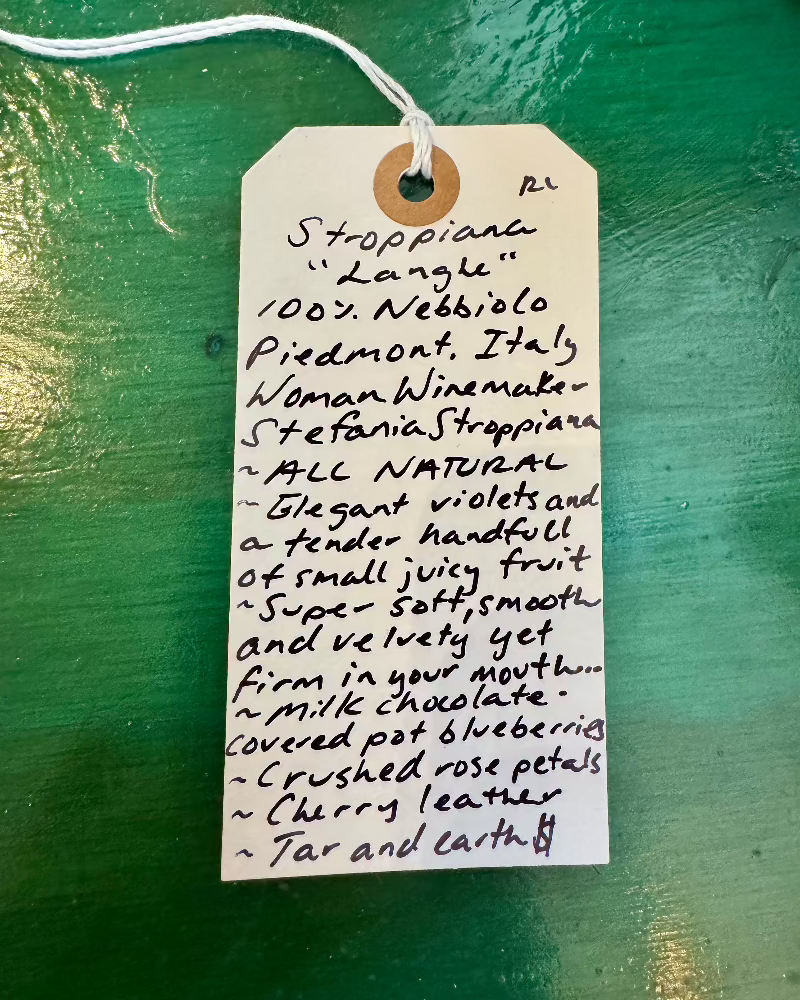 Stroppiana
"Langhe"
100% Nebbiolo
Piedmont, Italy
Woman Winemaker
Stefania Stroppiana
~ ALL NATURAL
~ Elegant violets and
a tender handfull
of small juicy fruit
~ Super soft, smooth
and velvety yet
firm in your mouth...
~ Milk chocolate-
covered pot blueberries
~ Crushed rose petals
~ Cherry leather
~ Tar and earth $